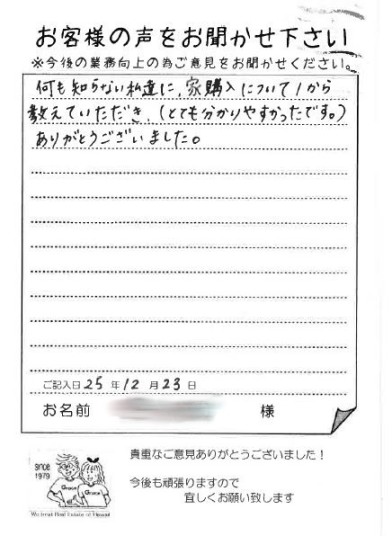 お客様の声をお聞かせ下さい
※今後の業務向上の為ご意見をお聞かせください。
何も知らない私達に、家購入について1から
教えていただき、(とても分かりやすかったです。)
ありがとうございました。
ご記入日 25 年 12 月 23 日
お名前 様
貴重なご意見ありがとうございました!
今後も頑張りますので
宜しくお願い致します
SINCE
1979